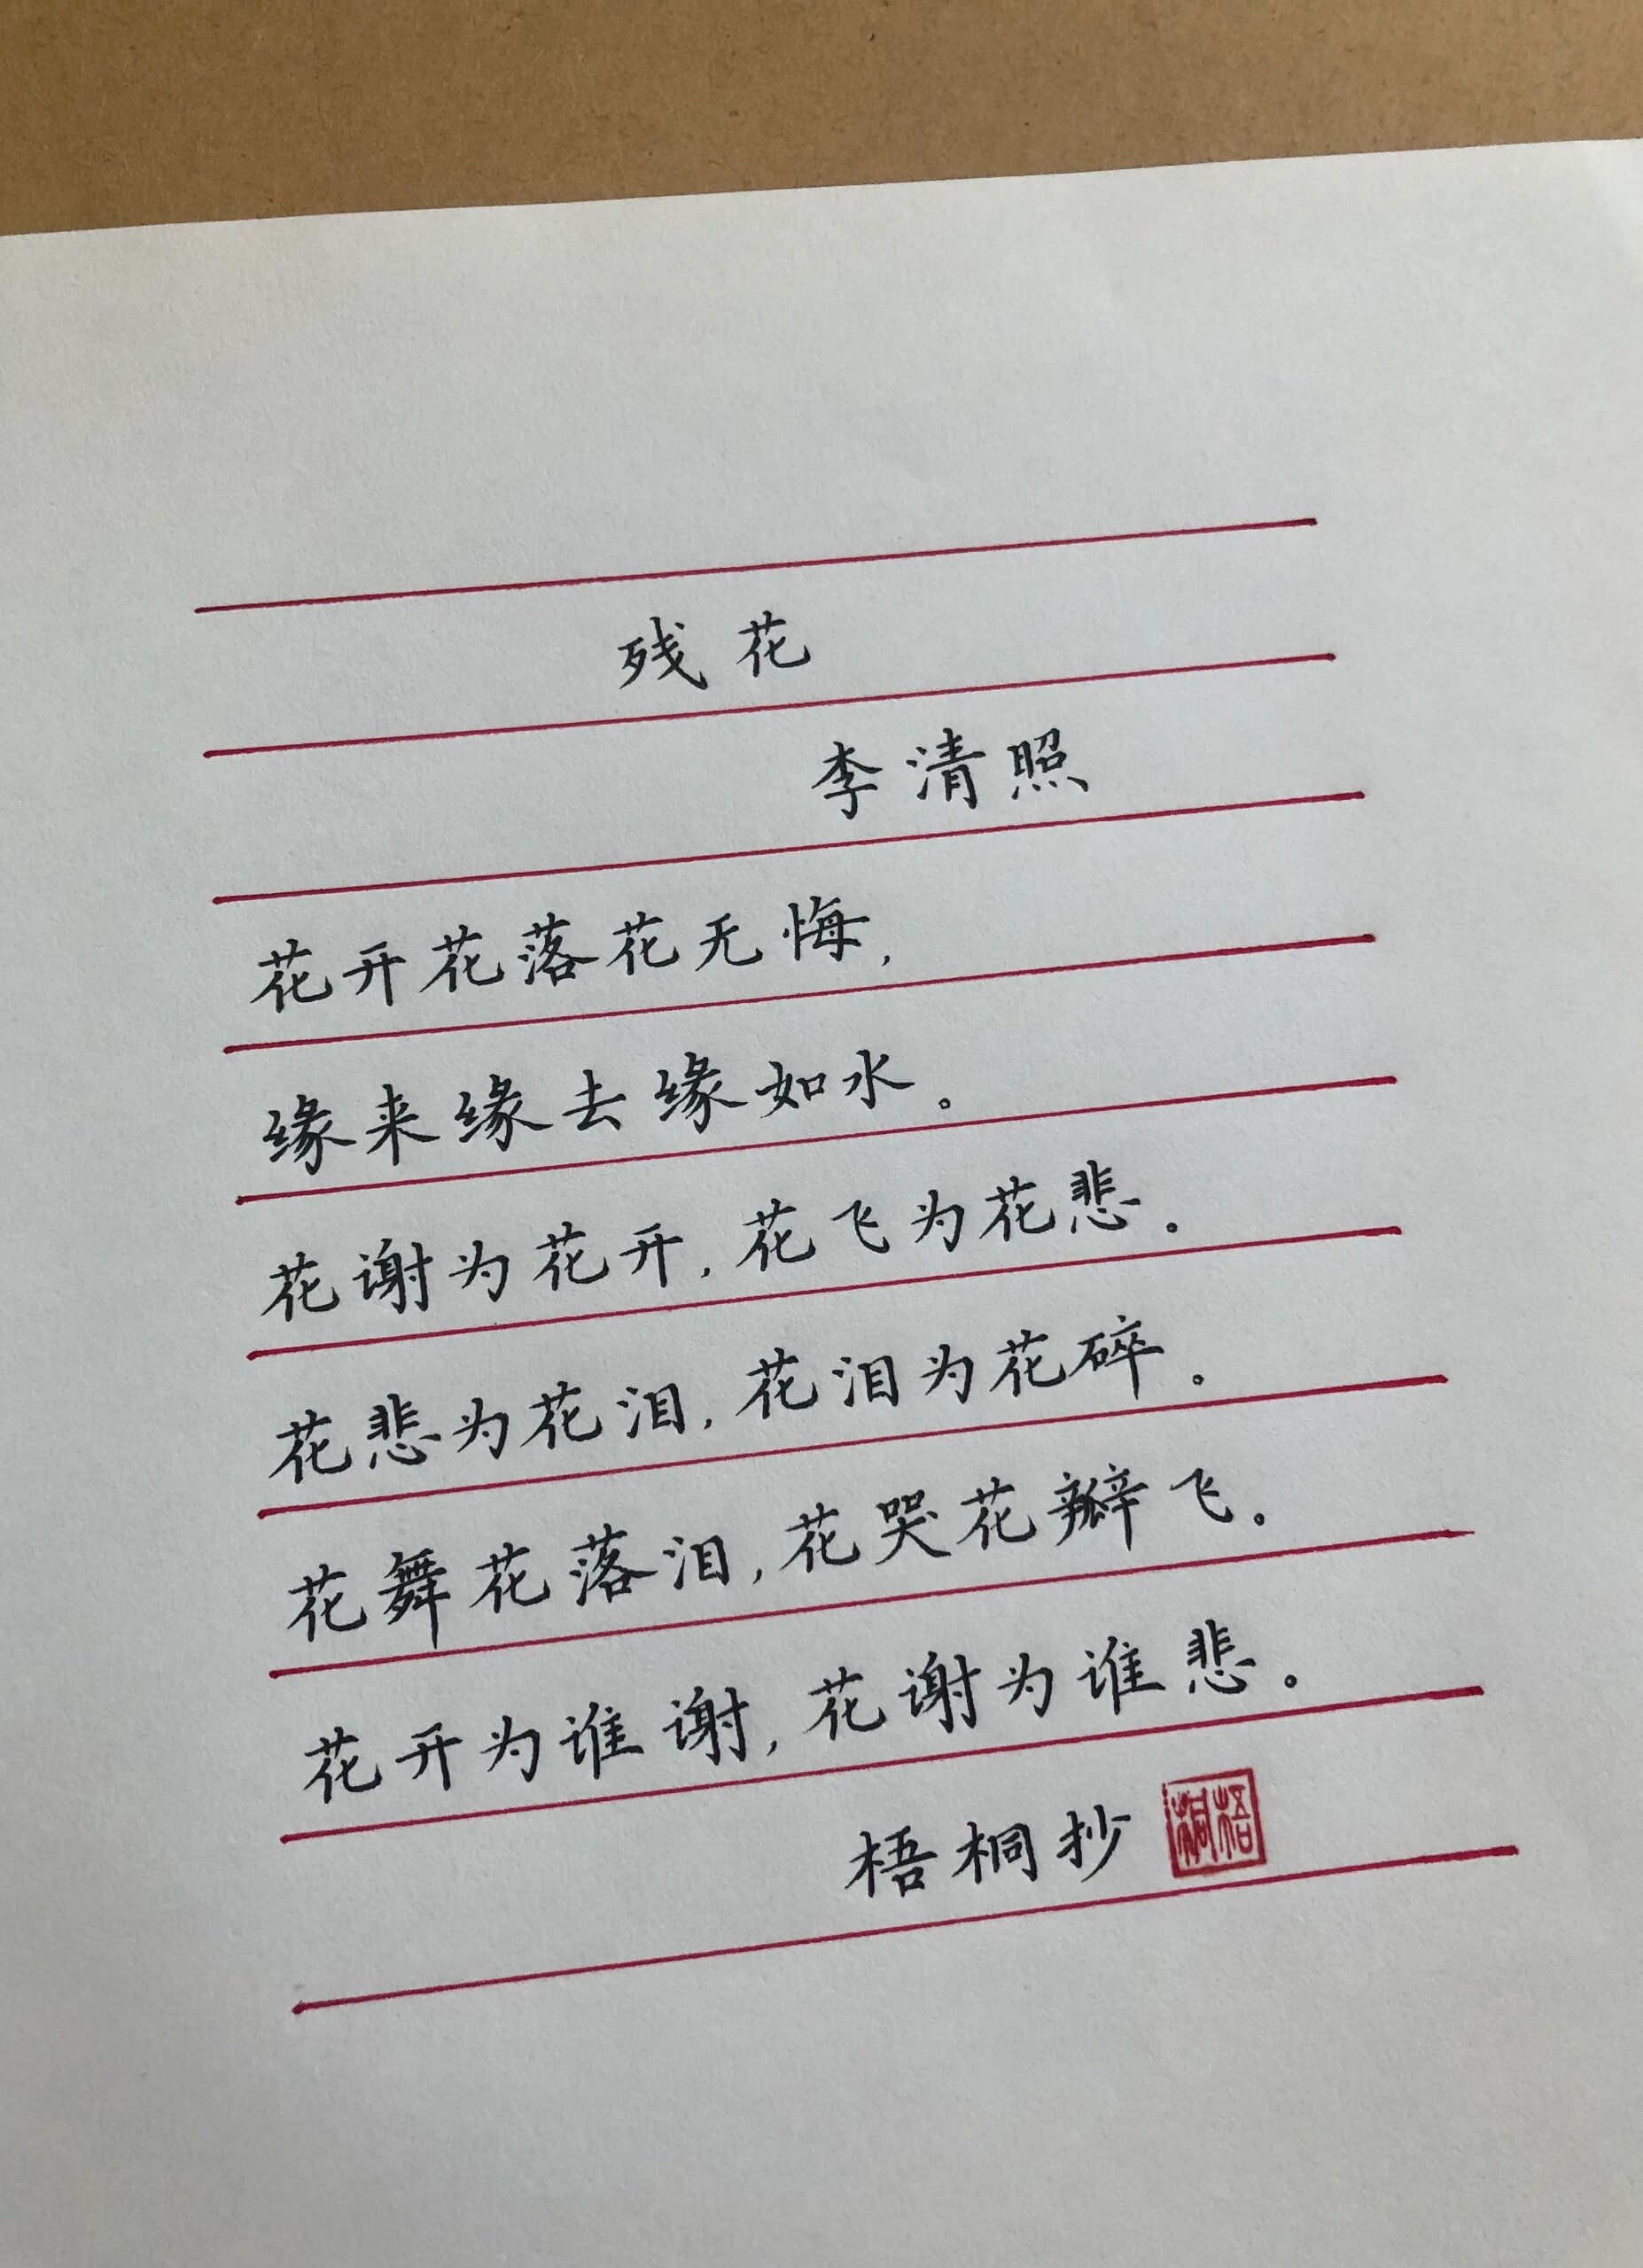 残花
李清照
花开花落花无悔,
缘来缘去缘如水。
花谢为花开,花飞为花悲。
花悲为花泪,花泪为花碎。
花舞花落泪,花哭花瓣飞。
花开为谁谢,花谢为谁悲。
梧桐抄
梧桐